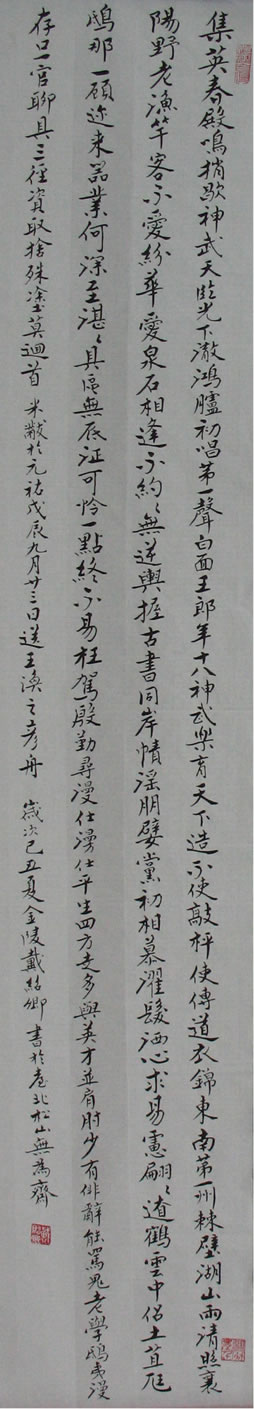 集英春殿鳴梢歇神武天臨光下澈鴻臚初唱第一聲白面王郎年十八神武樂育天下造不使敲枰使傳道衣錦東南第一州棘璧湖山兩清照襄
陽野老漁竿客不愛紛華愛泉石相逢不約々無逆輿握古書同岸幘淫朋嬖黨初相慕濯髮洒心求易慮翩々遼鶴雲中侶土苴尪
鴟那一顧邇來器業何深至湛々具區無底沚可憐一點終不易枉駕殷勤尋漫仕漫仕平生四方走多與英才並肩肘少有俳辭能罵鬼老學鴟夷漫
存口一官聊具三徑資取捨殊塗莫迴首 米黻於元祐戊辰九月廿三日送王渙之彥舟 歲次己丑夏金陵戴紹卿書於臺北松山無為齋